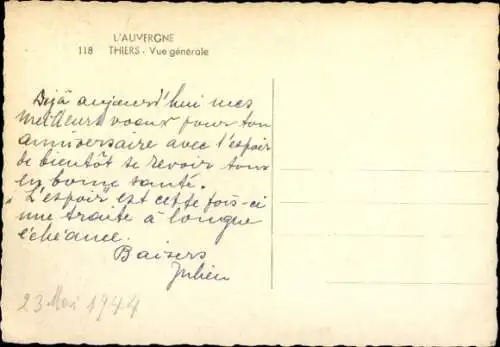 L'AUVERGNE
118 THIERS - Vue générale
Déjà aujourd'hui mes
meilleurs voeux pour ton
anniversaire avec l'espoir
de bientôt se revoir tous
en bonne santé.
L'espoir est cette fois-ci
une traite à longue
échéance.
Baisers
Julien
23 Mai 1944